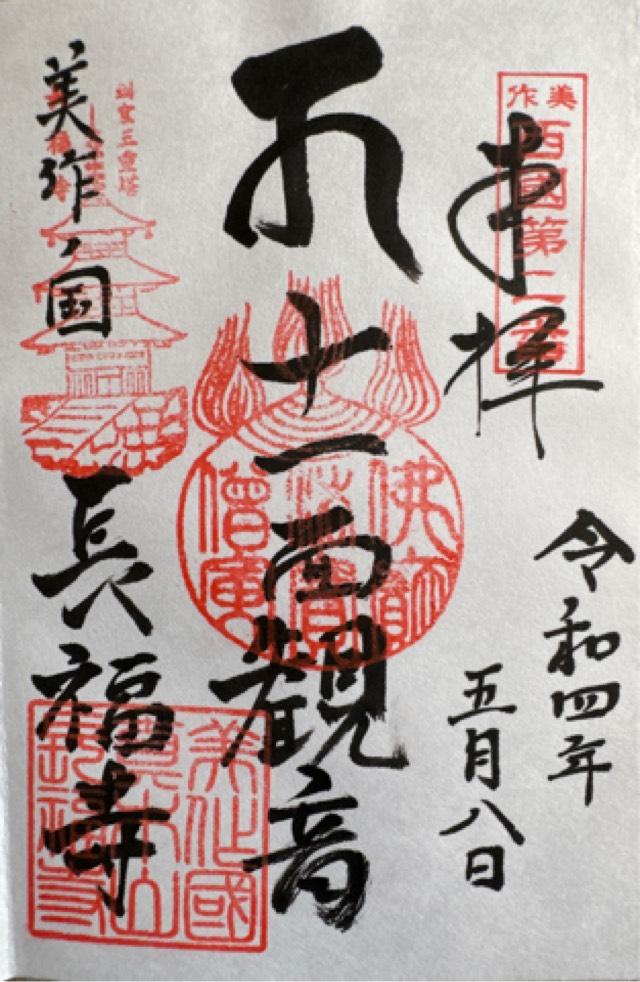 奉拝
令和四年
五月八日
十一面観音
美作ノ国
長福寺
美作
西國第二番
国宝三重塔
佛法僧寳
美作國
真木山
長福寺